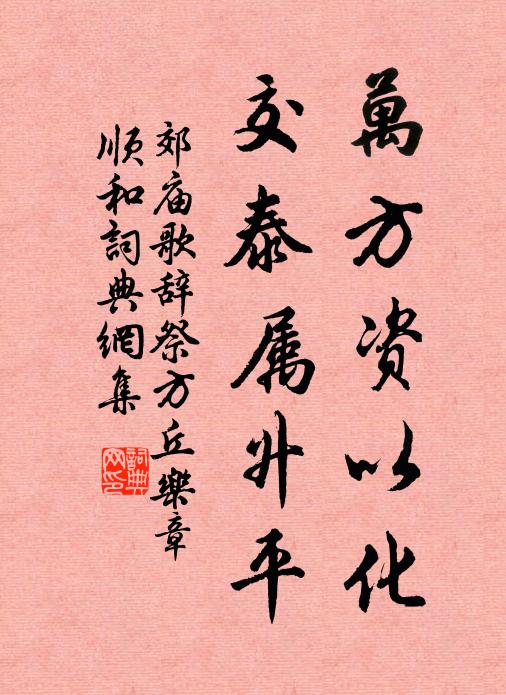 萬方資以化
交泰属升平
郊庙歌辞祭方丘樂章
順和詞典網集
詞典
网印